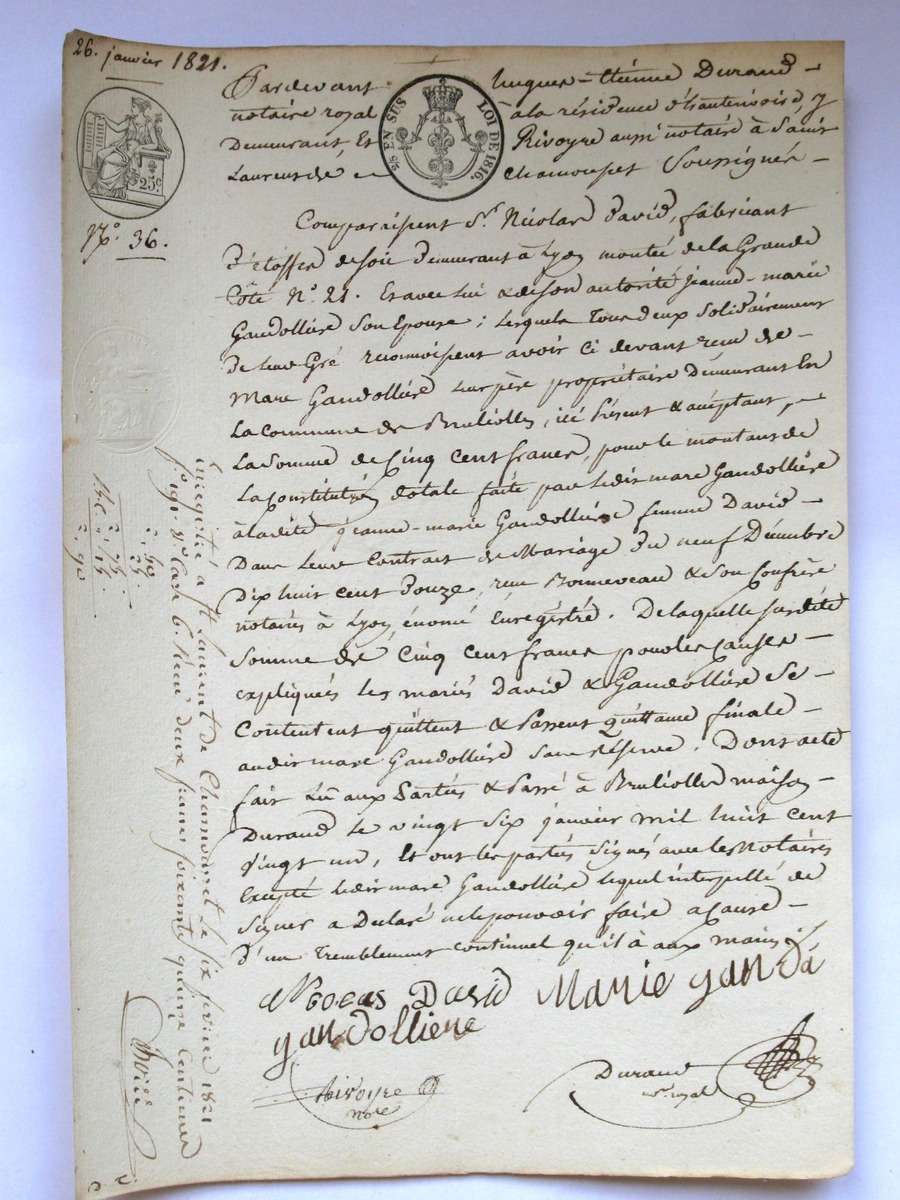 26. janvier 1821.
Pardevant hugues-Etienne Durand -
notaire royal à la résidence d'hauterivoire, y
Demeurant, Et Rivoyre aussi notaire à Saint
Laurent de Chamousset Soussignés -
2/5 EN SUS LOI DE 1816.
25c
No. 36.
Comparoissent Sr. Nicolas David, fabricant
d'étoffes de soie demeurant à Lyon montée de la Grande
Côte No. 21. Et avec lui & de son autorité jeanne-marie
Gandollière Son Epouse; lesquels Tous deux Solidairement
de leur Gré reconnoissent avoir ci devant reçu de -
Marc Gandollière leur père propriétaire Demeurant En
La Commune de Brulioles, ici Présent & acceptant,
La Somme de Cinq Cent francs, pour le montant de
La Constitution dotale faite par ledit marc Gandollière
à ladite jeanne-marie Gandollière femme David -
Dans leur Contrat de Mariage du neuf Décembre
Dix huit cent Douze, reçu Bonneveau & Son Confrère
notaires à Lyon, énoncé Enregistré. De laquelle susdite
Somme de Cinq Cent francs pour les causes -
expliquées les mariés David & Gandollière Se -
Contentent quittent & Passent Quittance finale -
audit marc Gandollière Sans Réserve. Dont acte
fait Lu aux Parties & Passé à Brulioles maison -
Durand le vingt Six janvier mil huit cent
vingt un, Et ont les parties Signés avec les Notaires
Excepté ledit marc Gandollière lequel interpellé de
Signer a Déclaré ne le pouvoir faire a cause -
d'un Tremblement continuel qu'il à aux mains
Nicolas David Marie ganda
gandolliere
Rivoyre
nore
Durand
nre. royal
Enregistré à St. Laurent de Chamousset le six février 1821
fo. 191. Vo. Case 6. Reçu deux francs soixante quinze centimes